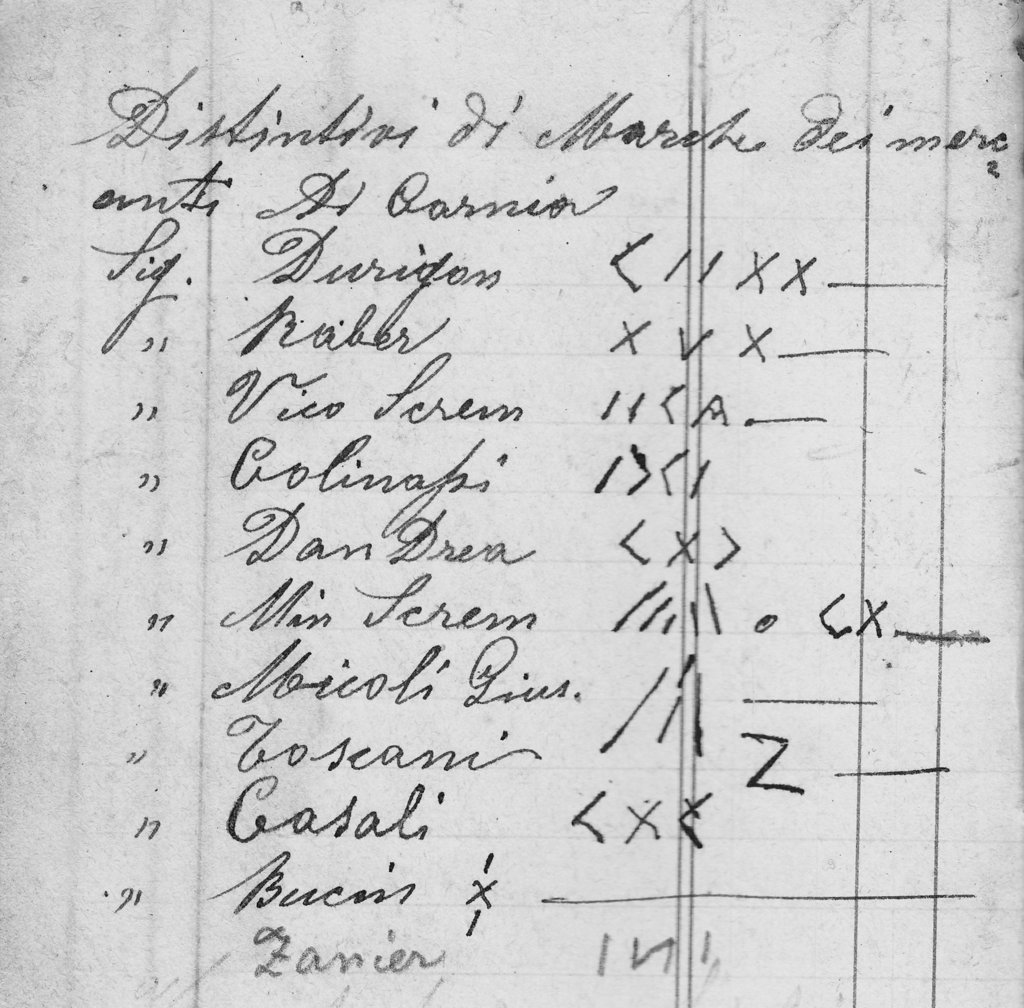 Distintivi di Marche dei merc
anti Di Carnia
Sig. Durigon < I I X X
" Raber X V X
" Vico Screm I I < A
" Colinassi I > < I
" Dan Drea < X >
" Min Screm / / / / I \ o < X
" Micoli Gius. / / I
" Toscani Z
" Casali < X <
" Bucin X
Zanier I N I